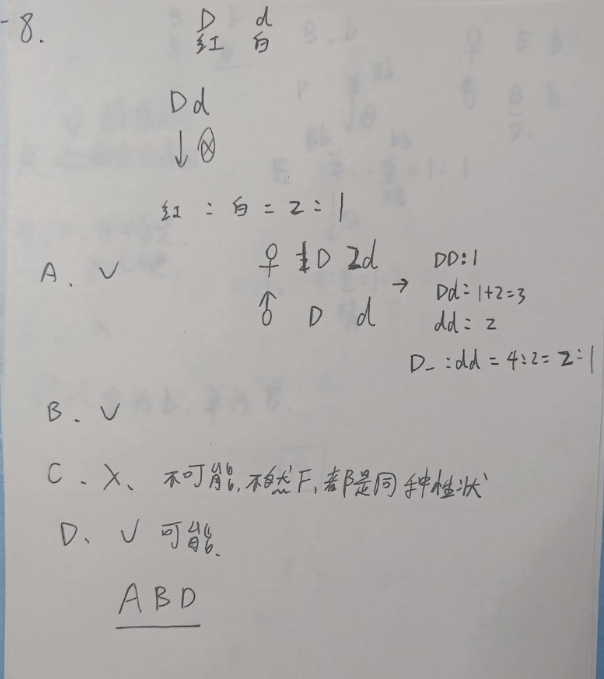 8.
D d
红 白
Dd
↓⊗
红：白=2：1
A、√
♀ 1D 2d → DD：1
♂ D d
Dd：1+2=3
dd：2
D_：dd=4：2=2：1
B、√
C、X、不可能，不然F₁都是同种性状
D、√ 可能.
ABD